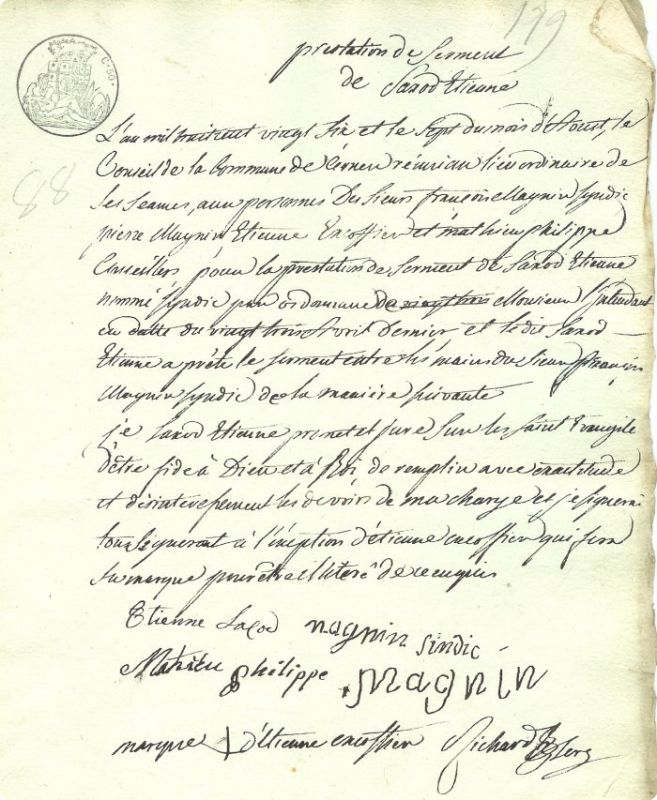 179
prestation de Serment
de Saxod Etienne
C. 50.
88
L'an mil huit cent vingt Six et le Sept du mois d'Aoust, le
Conseil de la Commune de réunian lieu ordinaire de
Ses Seames, aux personnes Des Sieurs françois Magnin Syndic
pierre Magnin Etienne Encoffier et mathieu philippe
Conseillers pour la prestation de Serment de Saxod Etienne
nommé Syndic par ordonnance de vingt trois Monsieur l'Intendant
en datte du vingt trois Avril dernier et le dit Saxod
Etienne a prété le Serment entre les mains du Sieur François
Magnin Syndic de la manière Suivante
je Saxod Etienne promet et jure Sur les Saint Evangile
d'être fide à Dieu et à Roi de remplir avec exactitude
et les devoirs de ma charge et je signerai
tous Signeront à l'éxéption d'étienne encoffier qui fera
Sa marque pour être illiteré de ce enquis
Etienne Saxod magnin sindic
Mathieu philippe magnin
marque d'étienne encoffier Richard